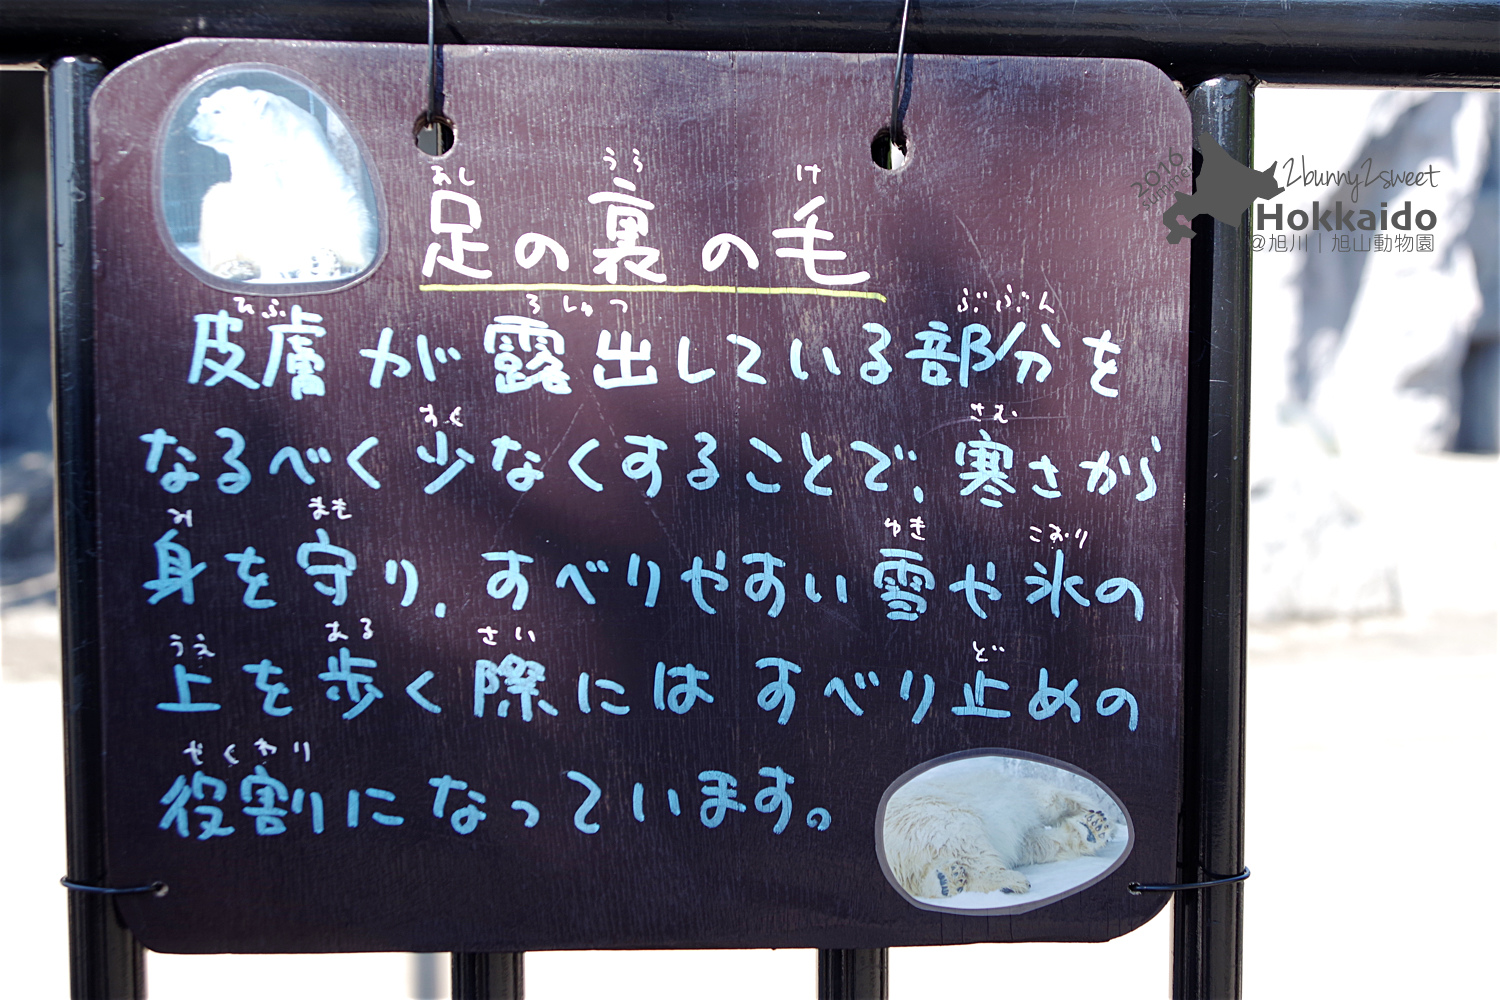 あし うら け
足の裏の毛
ひふ ろしゅつ ぶぶん
皮膚が露出している部分を
すく さむ
なるべく少なくすることで、寒さから
み まも ゆき こおり
身を守り、すべりやすい雪や氷の
うえ ある さい ど
上を歩く際にはすべり止めの
やくわり
役割になっています。
2016 summer
2bunny2sweet
Hokkaido
@旭川｜旭山動物園